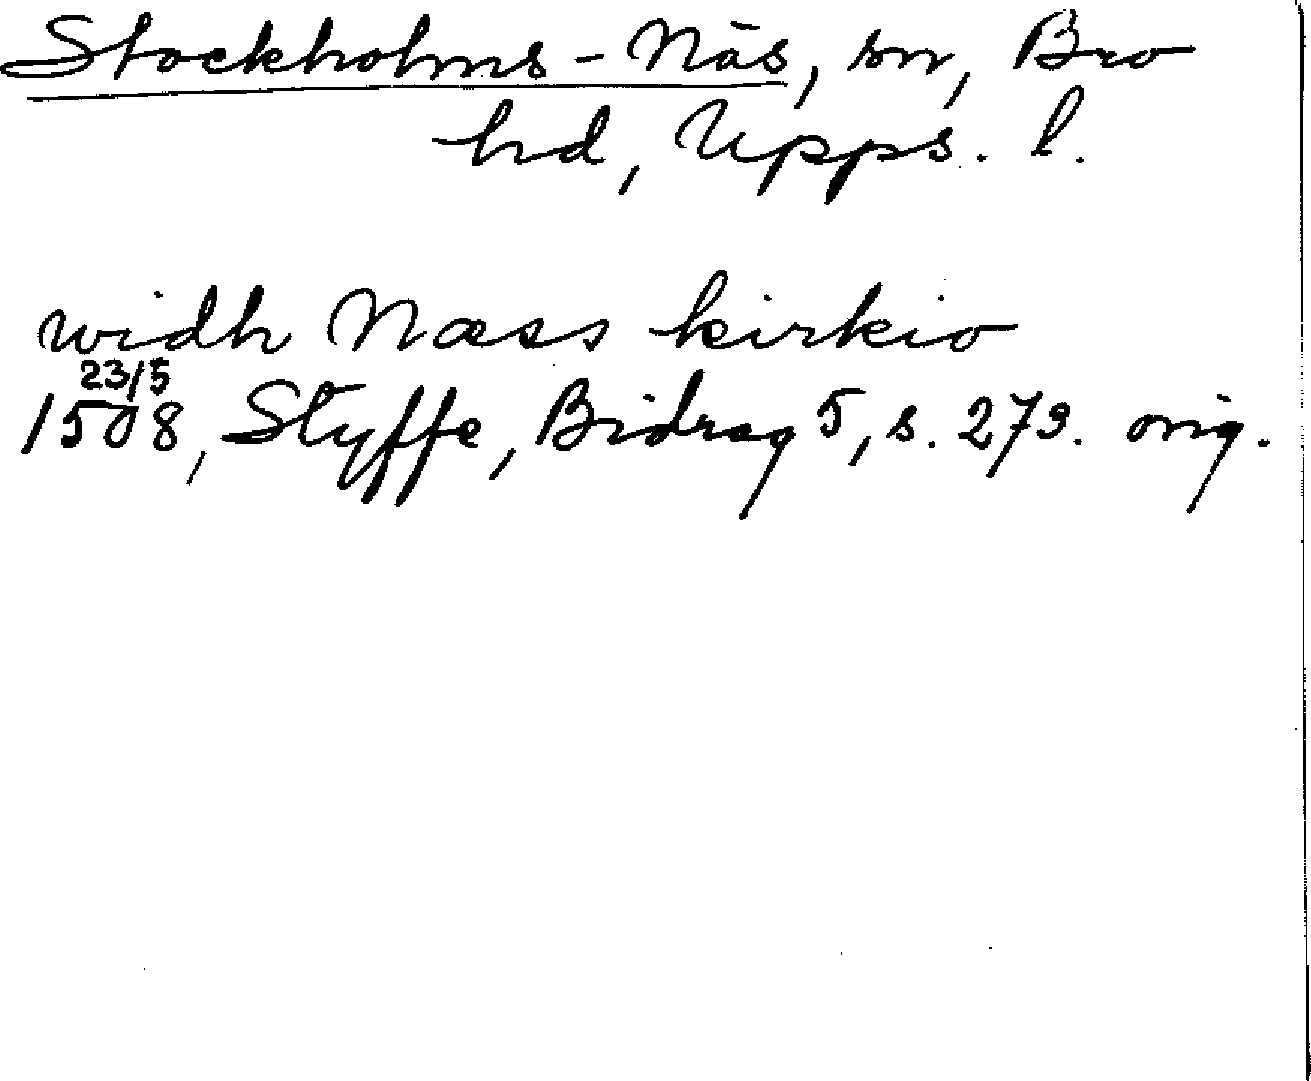 Stockholms-Näs, sn, Bro
hd, Upps. l.
widh Næss kirkio
23/5
1508, Styffe, Bidrag 5, s. 273. orig.